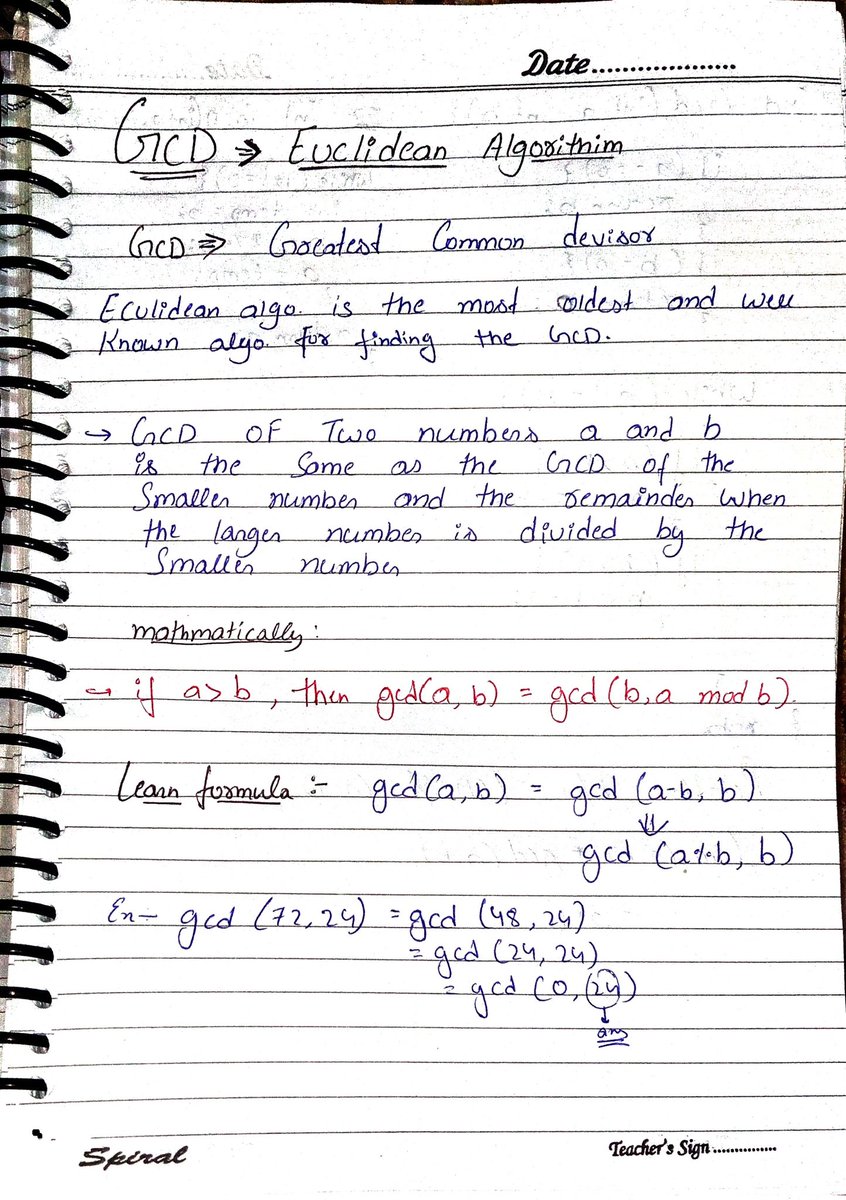 Date...................
GCD ⇒ Euclidean Algorithim
GCD ⇒ Greatest Common devisor
Eculidean algo. is the most oldest and well
Known algo. for finding the GCD.
→ GCD OF Two numbers a and b
is the Same as the GCD of the
Smaller number and the remainder when
the larger number is divided by the
Smaller number
mathmatically:
→ if a > b, then gcd(a, b) = gcd(b, a mod b).
Learn formula :- gcd(a, b) = gcd (a-b, b)
⇓
gcd (a%b, b)
Ex- gcd (72, 24) = gcd (48, 24)
= gcd (24, 24)
= gcd (0, 24)
↓
ans
Spiral
Teacher's Sign...............